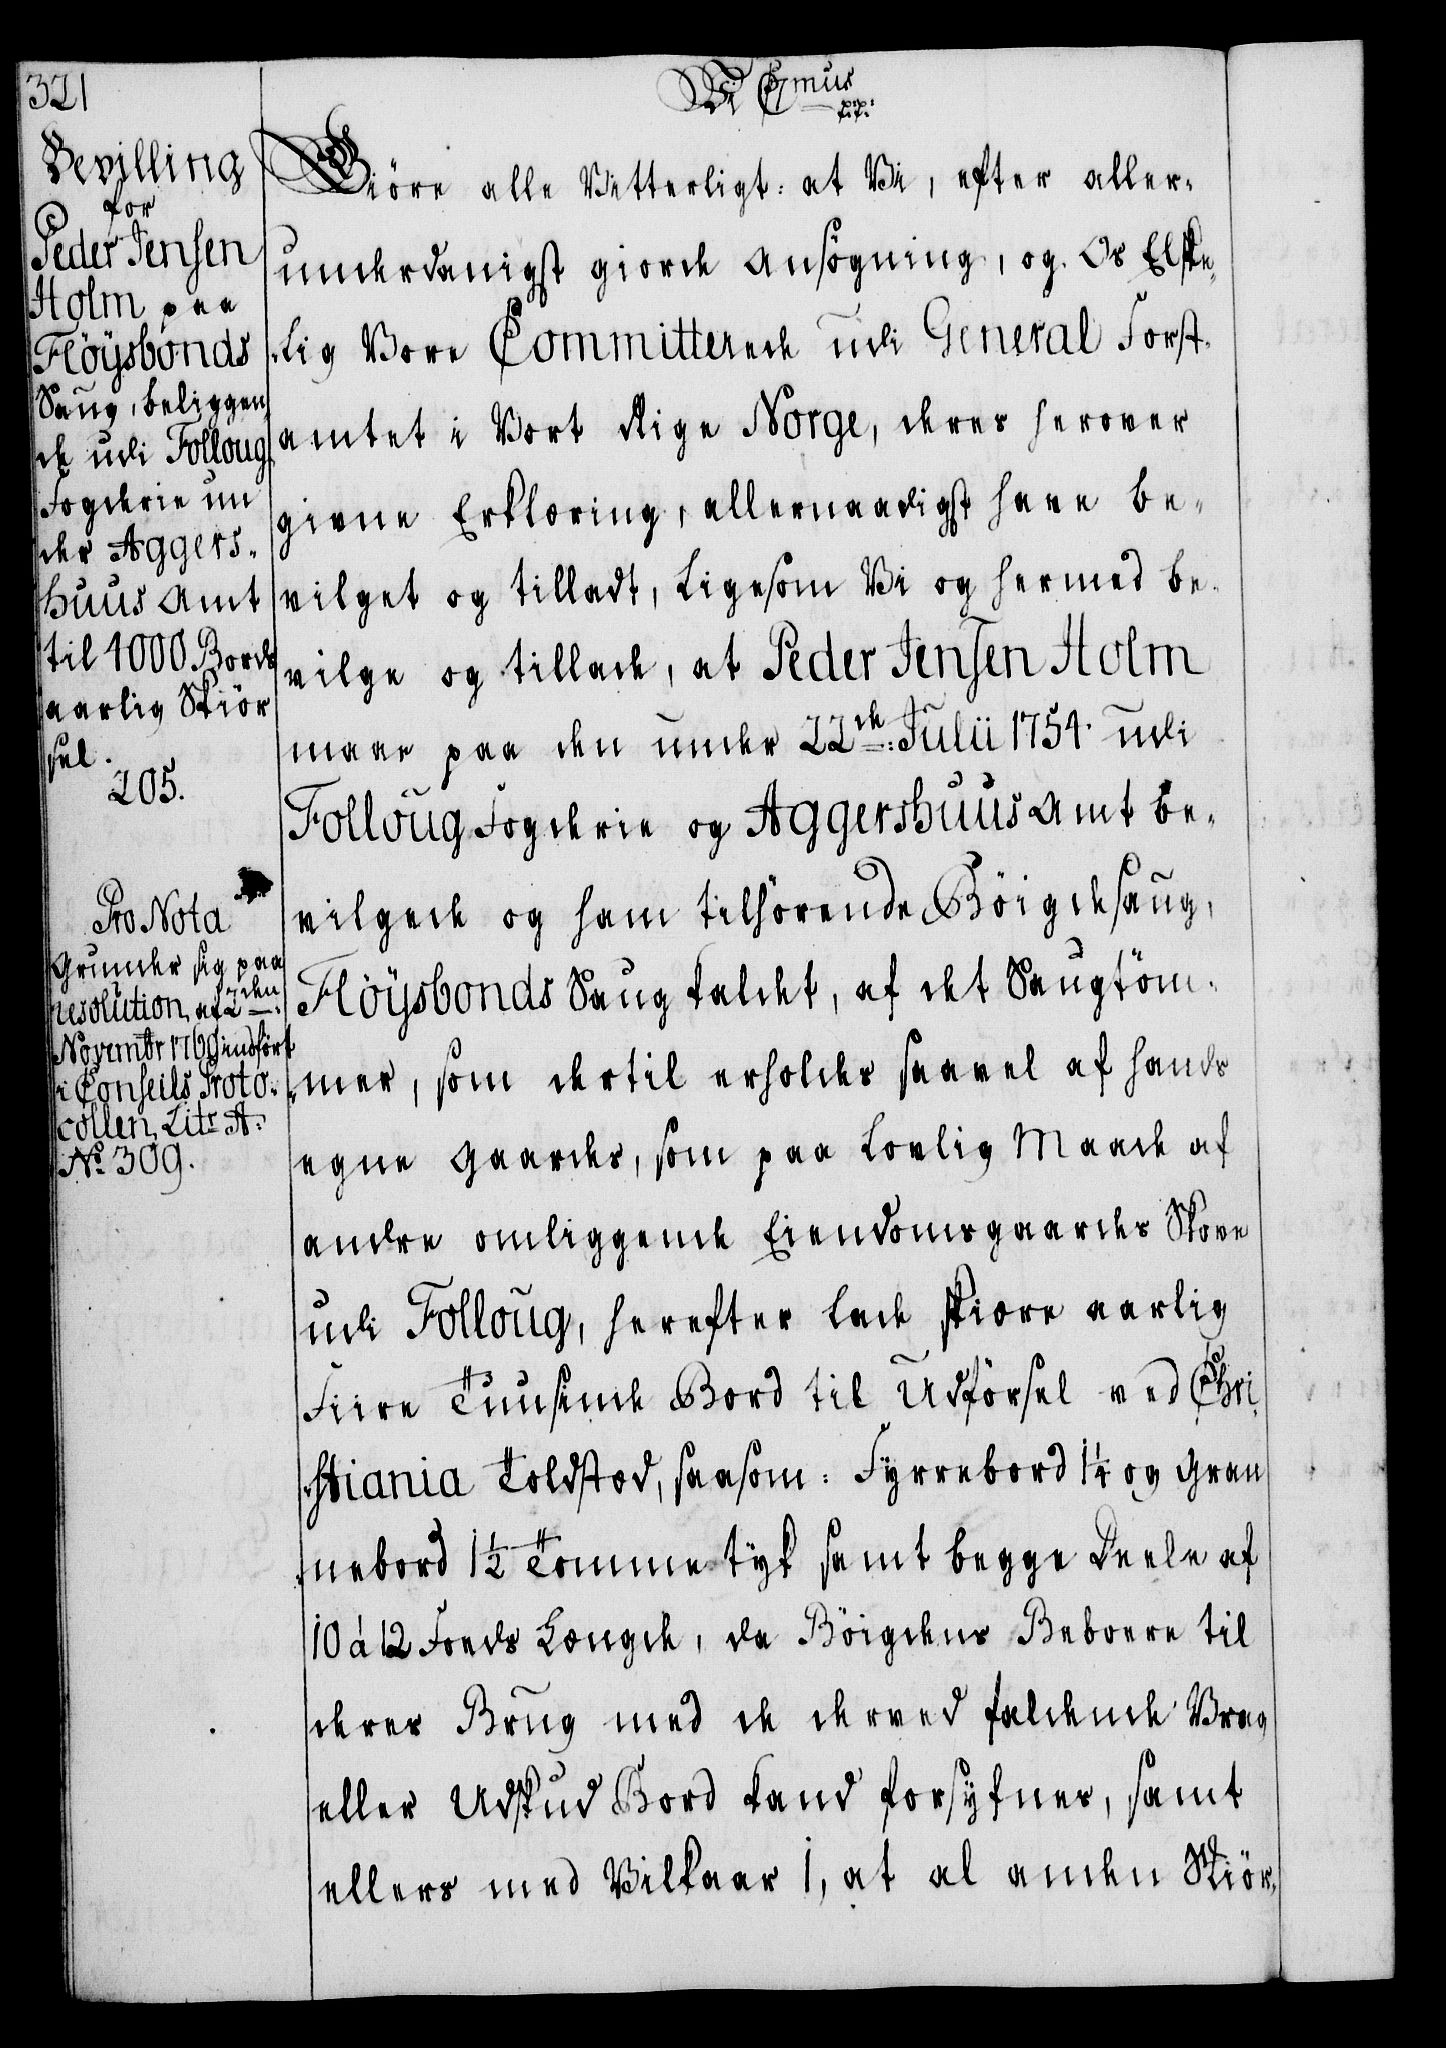 321
Bevilling
for
Peder Jensen
Holm paa
Flöÿsbonds
Saug, beliggen
de udi Folloug
Fogderie un
der Aggers-
huus Amt
til 4000 Bords
aarlig Skiör
sel.
205.
Pro Nota
Grunder sig paa
resolution af 2den
Novembr 1760 indfört
i Conseils Proto-
collen Litr A.
No 309.
Vi Cmus
pp:
Giöre alle Vitterligt: at Vi, efter aller-
underdanigst giorde Ansögning, og Os Elske-
lig Vore Committerede udi General Forst-
amtet i Vort Rige Norge, deres herover
givne Erklæring, allernaadigst have be-
vilget og tilladt, Ligesom Vi og hermed be-
vilge og tillade, at Peder Jensen Holm
maae paa den under 22de Julii 1754. udi
Folloug Fogderie og Aggershuus Amt be-
vilgede og ham tilhörende Böigdesaug,
Flöÿsbonds Saug kaldet, af det Saugtöm-
mer, som dertil erholdes saavel af hands
egne Gaarder, som paa Lovlig Maade af
andre omliggende Eiendomsgaarders Skove
udi Folloug, herefter lade skiære aarlig
Fiire Tuusinde Bord til Udförsel ved Chri-
stiania Toldstæd, saasom: Fyrrebord 1¼ og Gran
nebord 1½ Tomme tyk samt begge Deele af
10 á 12 Foeds Længde, da Böigdens Beboere til
deres Brug med de derved faldende Vrag
eller Udskud Bord kand forsyfnes, samt
ellers med Vilkaar 1, at al anden Skiör-